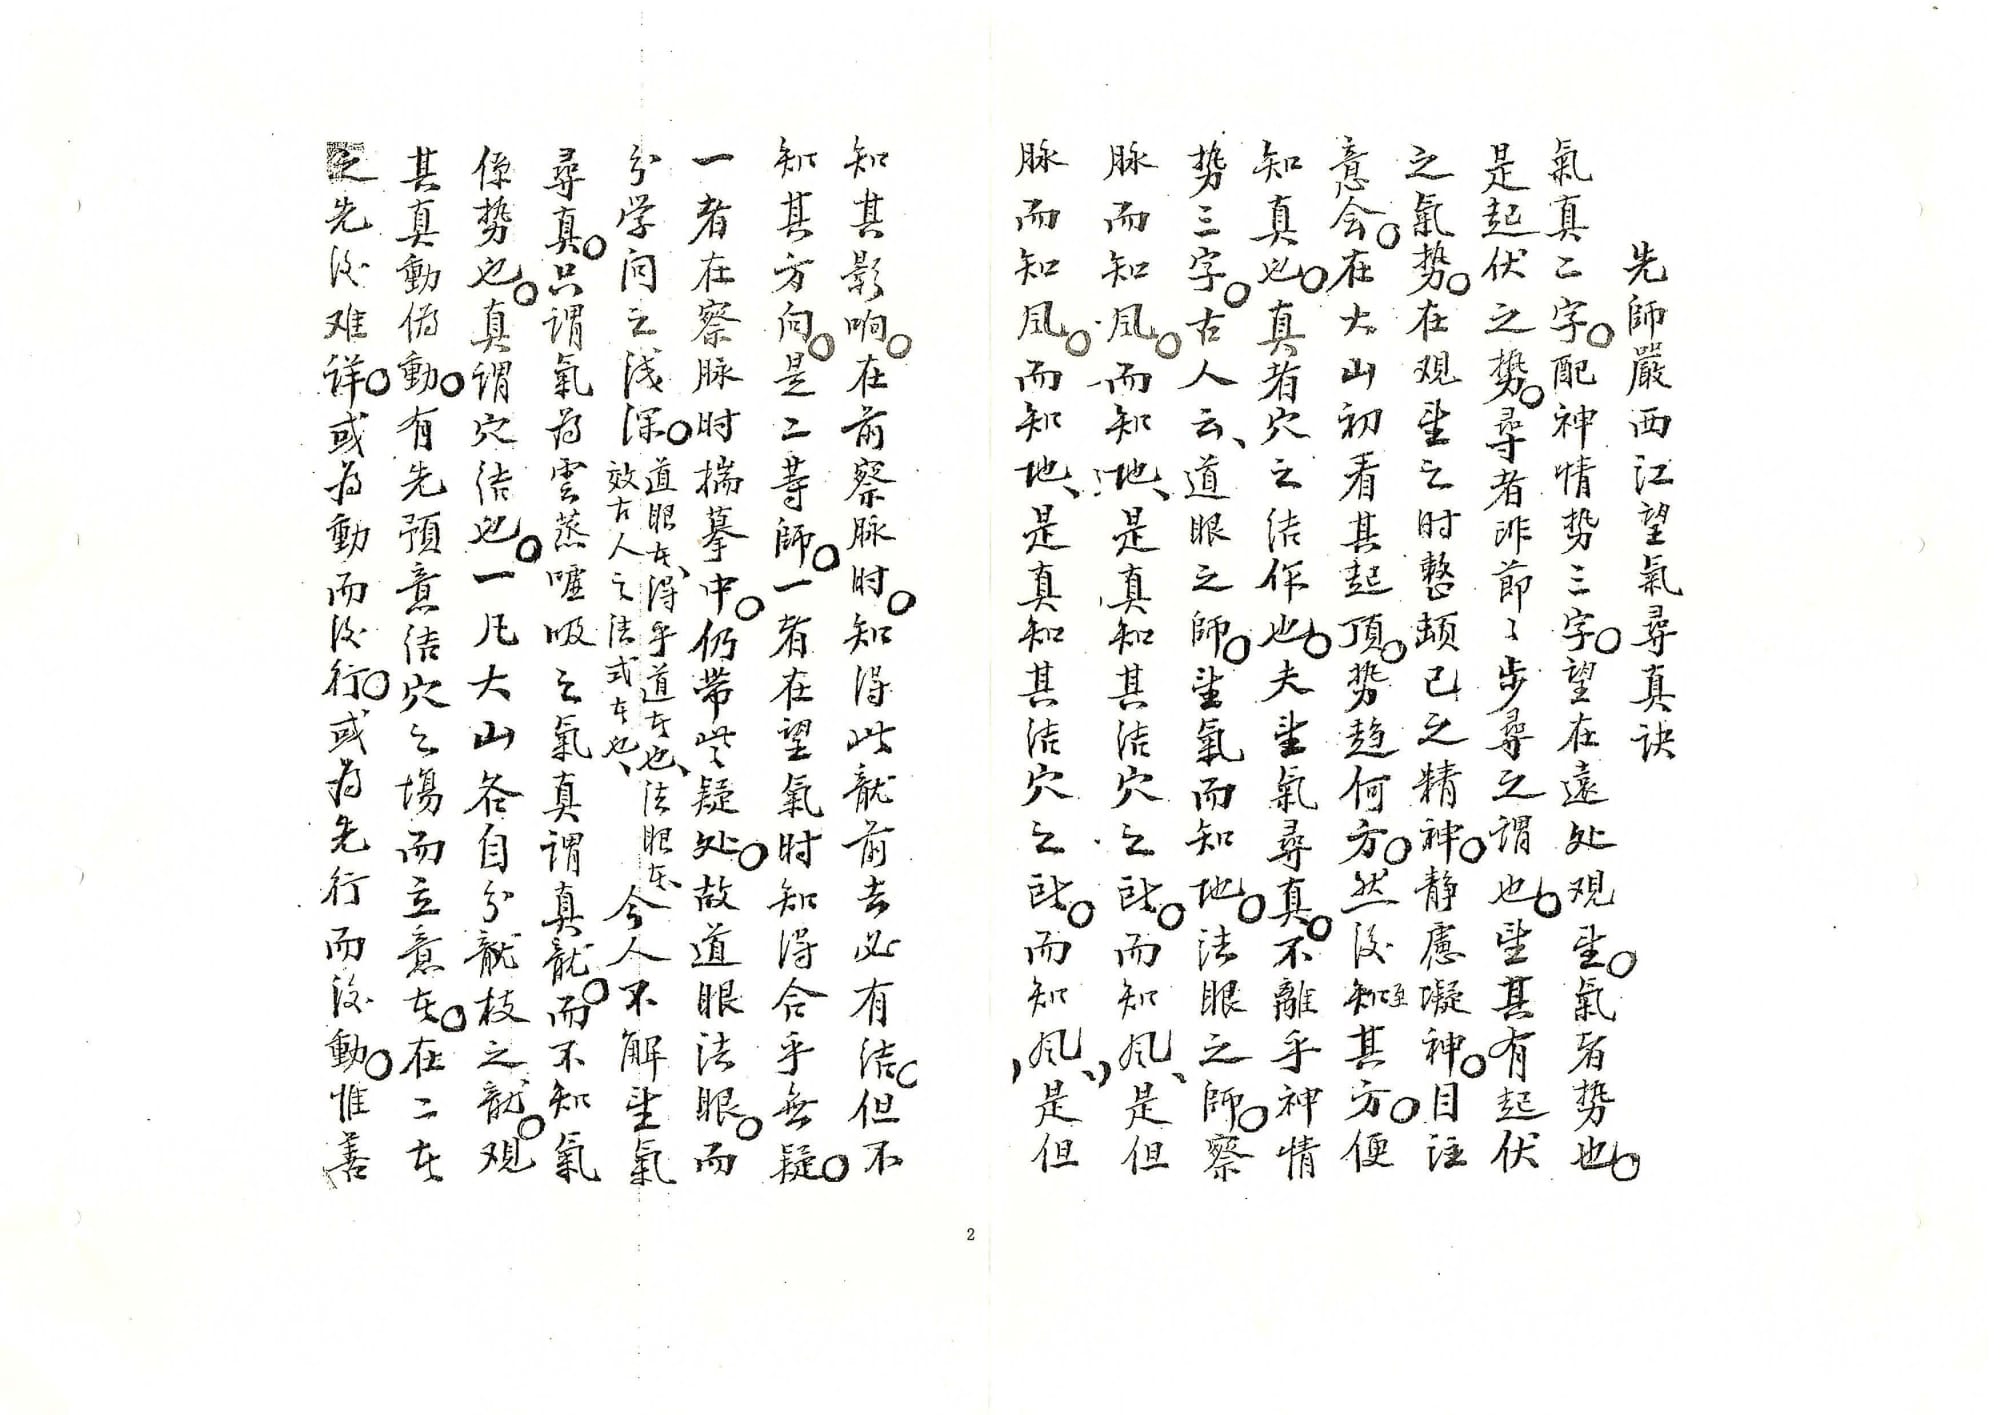 先師嚴西江望氣尋真訣
氣真二字。配神情势三字。望在遠处观望。氣者势也。
是起伏之势。尋者非節々步尋之谓也。望其有起伏
之氣势。在观望之时整顿已之精神。静慮凝神。目注
意会。在大山初看其起頂。势趋何方。然後知至其方。便
知真也。真者穴之结作也。夫望氣尋真。不離乎神情
势三字。古人云、道眼之師。望氣而知地。法眼之師。察
脉而知风。而知地、是真知其结穴之所。而知风、是但
脉而知风。而知地、是真知其结穴之所。而知风、是但
知其影响。在前察脉时。知得此龍前去必有结。但不
知其方向。是二等師。一者在望氣时知得合乎無疑。
一者在察脉时揣摹中。仍带些疑处。故道眼法眼。而
分学问之浅深。道眼在、得乎道在也、法眼在、效古人之法式在也、今人不解望氣
尋真。只谓氣为雲蒸嘘吸之氣真谓真龍。而不知氣
係势也。真谓穴结也。一凡大山各自分龍枝之龍。观
其真動偽動。有先預意结穴之場而立意在。在二在
之先後难详。或为動而後行。或为先行而後動。惟善
2